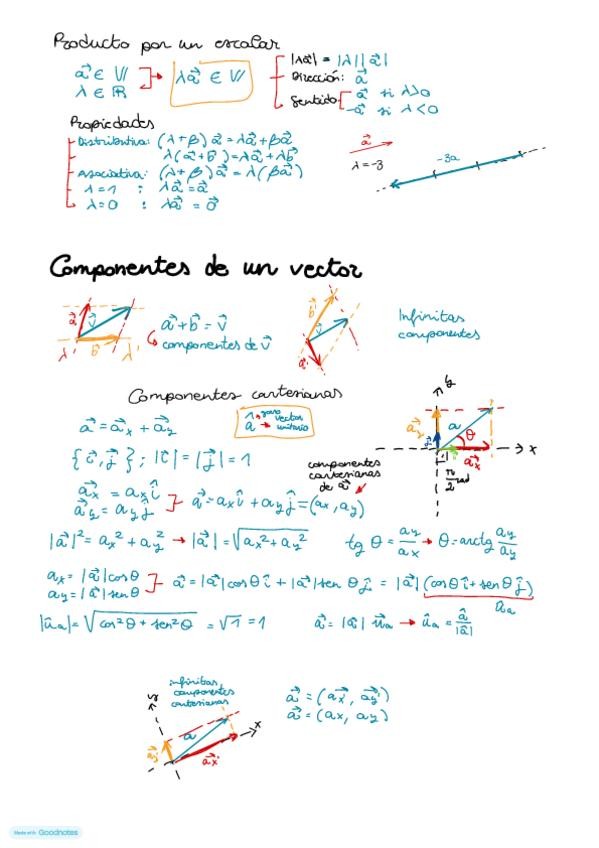 Producto por un escalar
a⃗ ∈ V
λ ∈ ℝ
λa⃗ ∈ V
|λa⃗| = |λ||a⃗|
Dirección: a⃗
Sentido a⃗ si λ>0
-a⃗ si λ<0
Propiedades
Distributiva: (λ+β)a⃗ = λa⃗+βa⃗
λ(a⃗+b⃗) = λa⃗+λb⃗
Asociativa: (λ+β)a⃗ = λ(βa⃗)
λ=1 : λa⃗=a⃗
λ=0 : λa⃗ = 0⃗
a⃗
λ=-3
-3a
Componentes de un vector
a⃗
v⃗
b⃗
λ
λ'
a⃗+b⃗ = v⃗
componentes de v⃗
b⃗
v⃗
a⃗
Infinitas
componentes
Componentes cartesianas
a⃗ = a⃗x + a⃗y
vector
unitario
{i⃗, j⃗}; |i⃗| = |j⃗| = 1
a⃗x = axî
a⃗y = ayĵ
a⃗ = axî + ayĵ = (ax, ay)
componentes
cartesianas
de a⃗
y
a
θ
x
a⃗x
π/2 rad
|a⃗|² = ax² + ay² → |a⃗| = √ax² + ay²
tg θ = ay/ax → θ = arctg ay/ay
ax = |a⃗|cosθ
ay = |a⃗|senθ
a⃗ = |a⃗|cosθ î + |a⃗|sen θ ĵ = |a⃗|(cosθ î + senθ ĵ)
ûa
|ûa| = √cos²θ + sen²θ = √1 = 1
a⃗ = |a⃗| u⃗a → ûa = a⃗/|a⃗|
infinitas
componentes
cartesianas
y
x
a
a⃗x
a⃗ = (a⃗x, a⃗y)
a⃗ = (ax, ay)
Made with Goodnotes